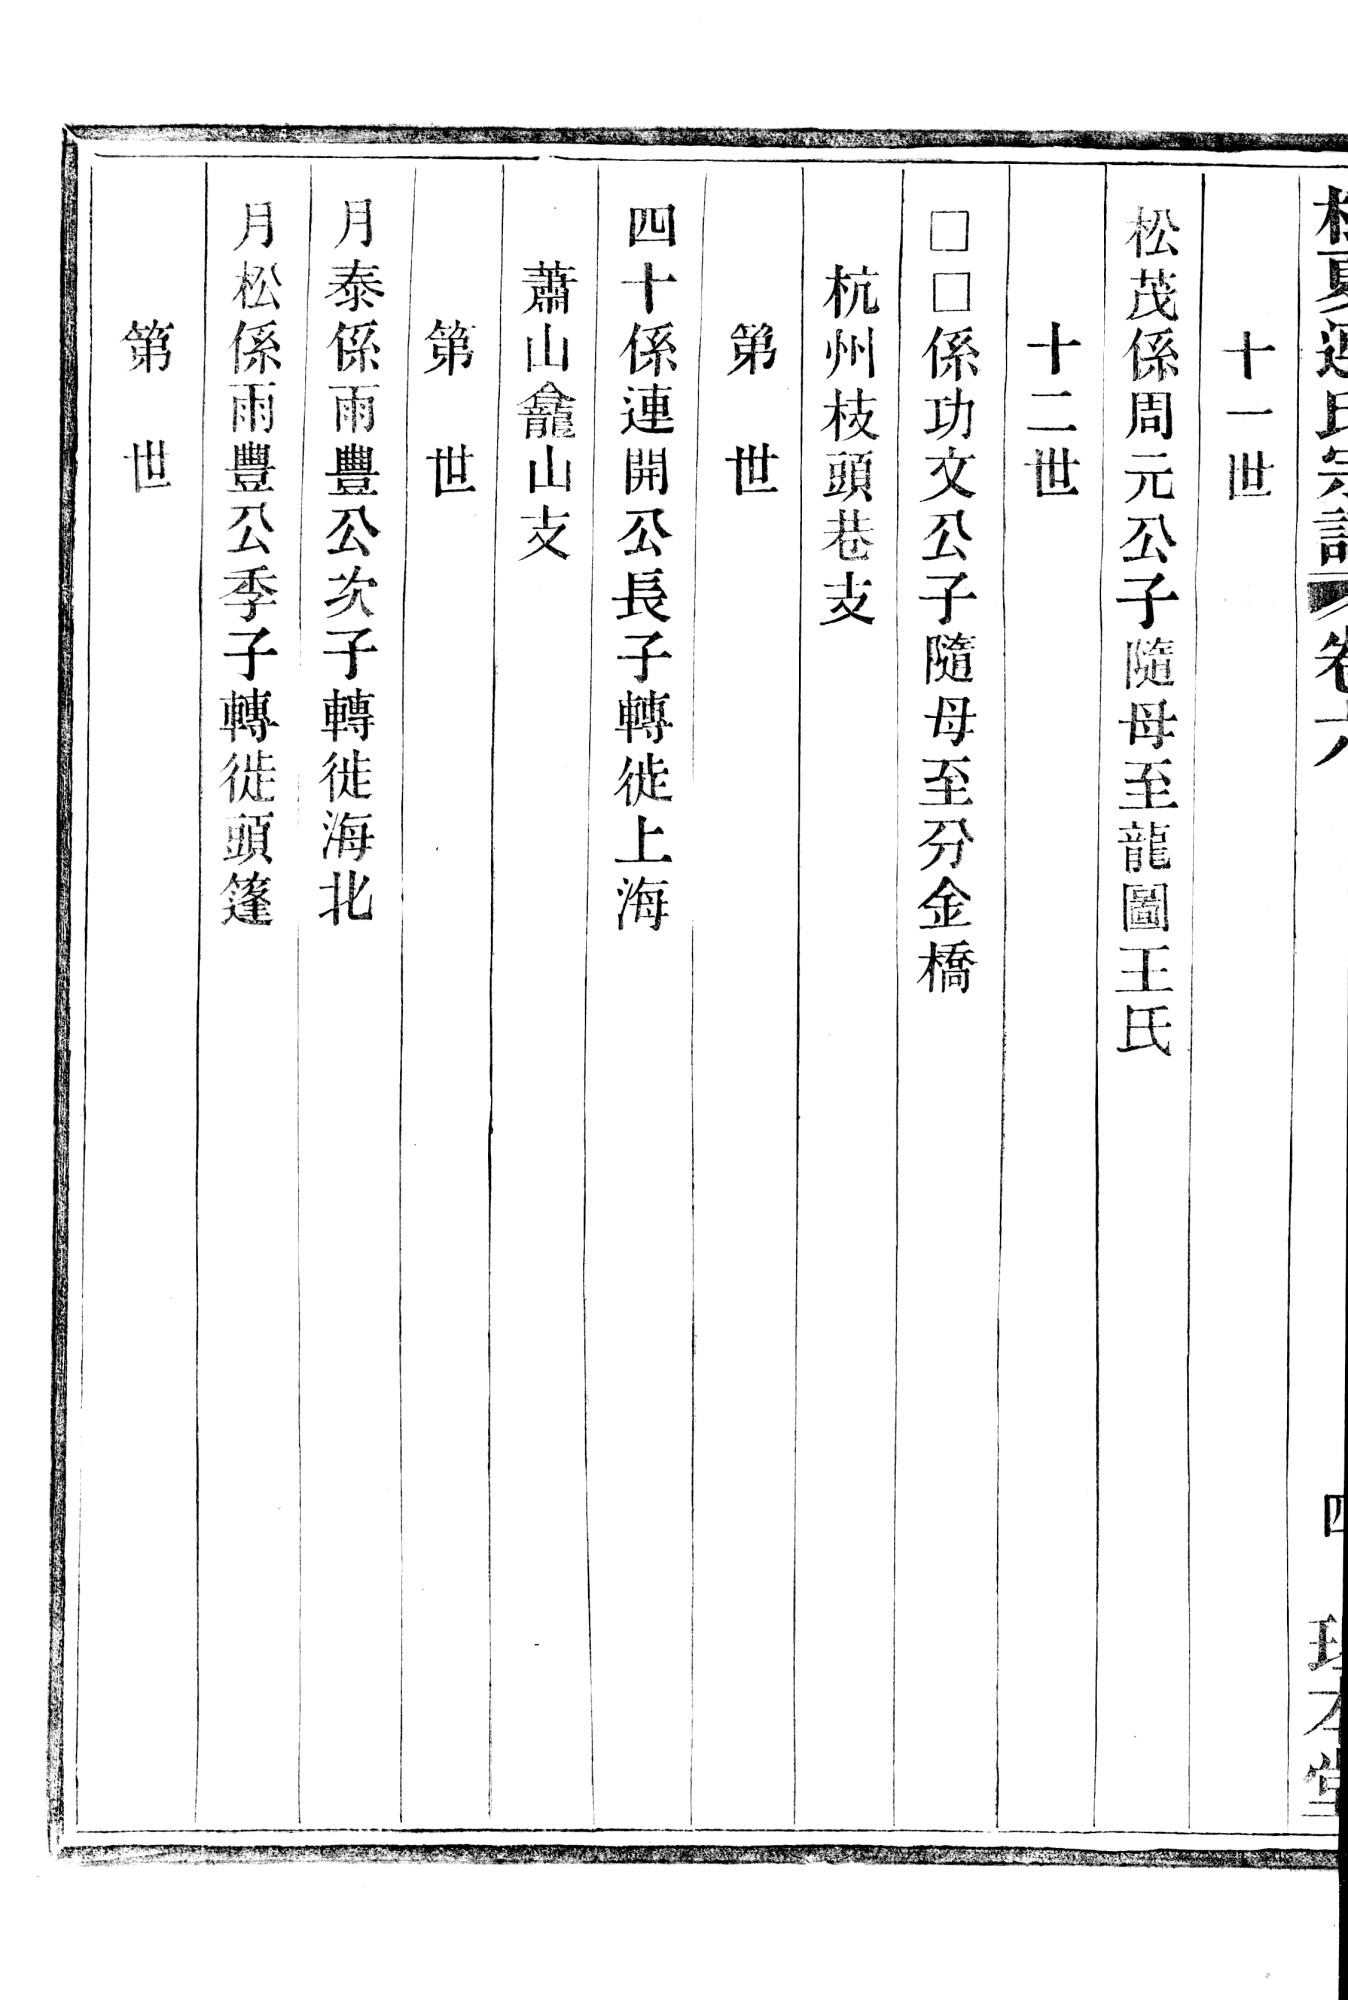 氏宗譜 卷六 四 本堂
十一世
松茂係周元公子隨母至龍圖王氏
十二世
□□係功文公子隨母至分金橋
杭州枝頭巷支
第 世
四十係連開公長子轉徙上海
蕭山龕山支
第 世
月泰係雨豐公次子轉徙海北
月松係雨豐公季子轉徙頭篷
第 世